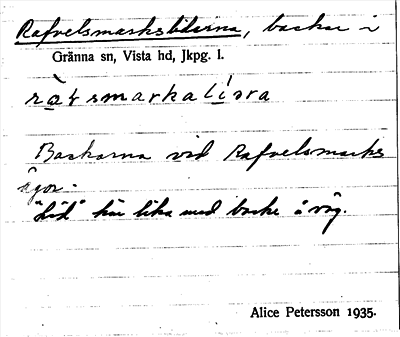 Rafvelsmarkslidorna, backar i
Gränna sn, Vista hd, Jkpg. l.
Backarna vid Rafvelsmarks
ägor.
"Lid" här lika med backe å väg.
Alice Petersson 1935.